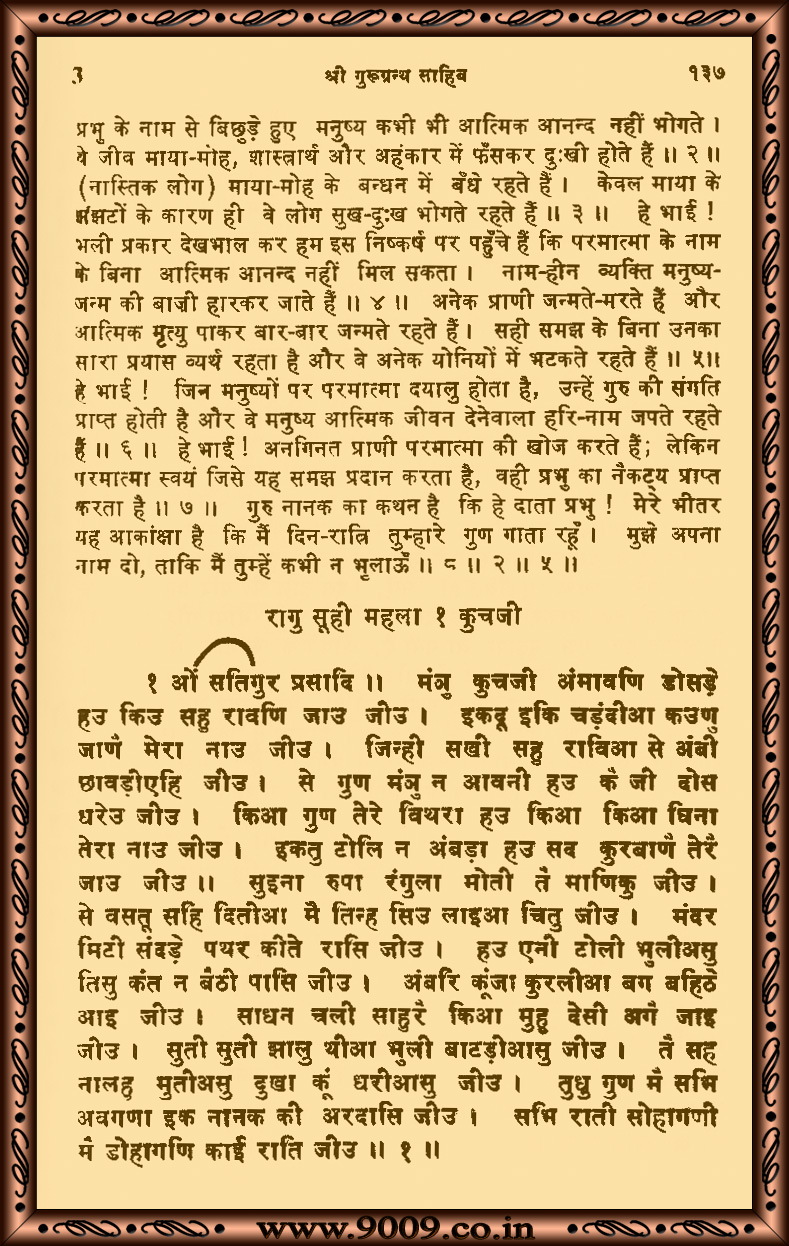 3 श्री गुरूग्रन्थ साहिब १३७
प्रभु के नाम से बिछुड़े हुए मनुष्य कभी भी आत्मिक आनन्द नहीं भोगते ।
वे जीव माया-मोह, शास्त्रार्थ और अहंकार में फँसकर दुःखी होते हैं ॥ २ ॥
(नास्तिक लोग) माया-मोह के बन्धन में बँधे रहते हैं । केवल माया के
झंझटों के कारण ही वे लोग सुख-दुःख भोगते रहते हैं ॥ ३ ॥ हे भाई !
भली प्रकार देखभाल कर हम इस निष्कर्ष पर पहुँचे हैं कि परमात्मा के नाम
के बिना आत्मिक आनन्द नहीं मिल सकता । नाम-हीन व्यक्ति मनुष्य-
जन्म की बाज़ी हारकर जाते हैं ॥ ४ ॥ अनेक प्राणी जन्मते-मरते हैं और
आत्मिक मृत्यु पाकर बार-बार जन्मते रहते हैं । सही समझ के बिना उनका
सारा प्रयास व्यर्थ रहता है और वे अनेक योनियों में भटकते रहते हैं ॥ ५॥
हे भाई ! जिन मनुष्यों पर परमात्मा दयालु होता है, उन्हें गुरु की संगति
प्राप्त होती है और वे मनुष्य आत्मिक जीवन देनेवाला हरि-नाम जपते रहते
हैं ॥ ६ ॥ हे भाई ! अनगिनत प्राणी परमात्मा की खोज करते हैं; लेकिन
परमात्मा स्वयं जिसे यह समझ प्रदान करता है, वही प्रभु का नैकट्य प्राप्त
करता है ॥ ७ ॥ गुरु नानक का कथन है कि हे दाता प्रभु ! मेरे भीतर
यह आकांक्षा है कि मैं दिन-रात्रि तुम्हारे गुण गाता रहूँ । मुझे अपना
नाम दो, ताकि मैं तुम्हें कभी न भूलाऊँ ॥ ८ ॥ २ ॥ ५ ॥
रागु सूही महला १ कुचजी
१ ओं सतिगुर प्रसादि ॥ मंञु कुचजी अंमावणि डोसड़े
हउ किउ सहु रावणि जाउ जीउ । इकदू इकि चड़ंदीआ कउणु
जाणै मेरा नाउ जीउ । जिन्ही सखी सहु राविआ से अंबी
छावड़ीएहि जीउ । से गुण मंञु न आवनी हउ कै जी दोस
धरेउ जीउ । किआ गुण तेरे विथरा हउ किआ किआ घिना
तेरा नाउ जीउ । इकतु टोलि न अंबड़ा हउ सद कुरबाणै तेरै
जाउ जीउ ॥ सुइना रुपा रंगुला मोती तै माणिकु जीउ ।
से वसतू सहि दितीआ मै तिन्ह सिउ लाइआ चितु जीउ । मंदर
मिटी संदड़े पथर कीते रासि जीउ । हउ एनी टोली भुलीअसु
तिसु कंत न बैठी पासि जीउ । अंबरि कूंजा कुरलीआ बग बहिठे
आइ जीउ । साधन चली साहुरै किआ मुहु देसी अगै जाइ
जीउ । सुती सुती झालु थीआ भुली वाटड़ीआसु जीउ । तै सह
नालहु मुतीअसु दुखा कूं धरीआसु जीउ । तुधु गुण मै सभि
अवगणा इक नानक की अरदासि जीउ । सभि राती सोहागणी
मै डोहागणि काई राति जीउ ॥ १ ॥
www.9009.co.in